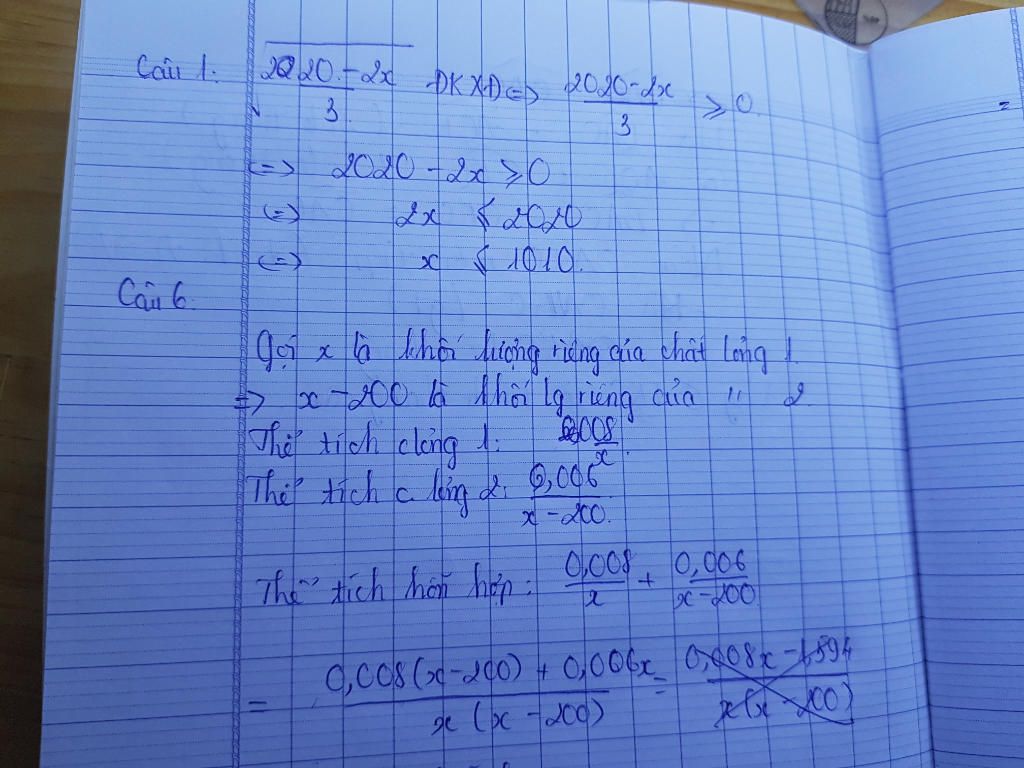 Câu 1. √(2020 - 2x)/3 ĐKXĐ <=> (2020 - 2x)/3 ≥ 0
<=> 2020 - 2x ≥ 0
<=> 2x ≤ 2020
<=> x ≤ 1010.
Câu 6.
Gọi x là khối lượng riêng của chất lỏng 1.
=> x - 200 là khối lg riêng của " 2.
Thể tích c lỏng 1: 0,008/x.
Thể tích c lỏng 2: 0,006/(x - 200).
Thể tích hỗn hợp: 0,008/x + 0,006/(x - 200)
= (0,008(x - 200) + 0,006x)/(x(x - 200)) =
=